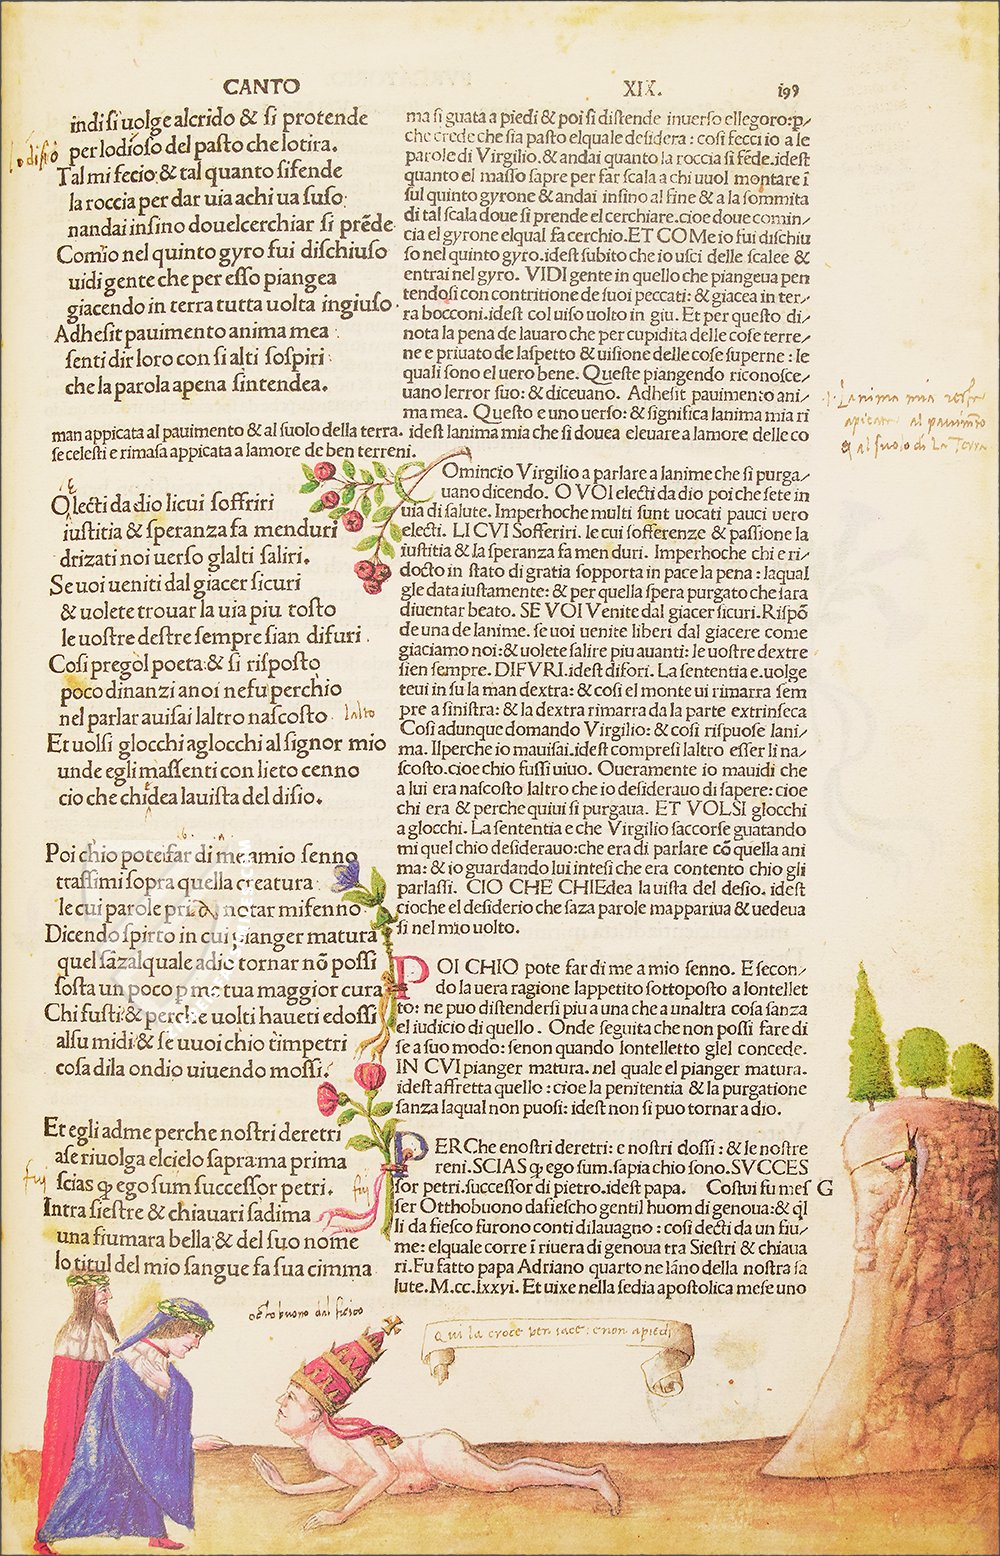 CANTO
XIX.
199
indi si uolge al crido & si protende
per lo dioso del pasto che lo tira.
Tal mi fecio: & tal quanto si fende
la roccia per dar uia a chi ua suso:
nandai insino doue l cerchiar si prẽde
Comio nel quinto gyro fui dischiuso
uidi gente che per esso piangea
giacendo in terra tutta uolta ingiuso.
Adhesit pauimento anima mea
senti dir loro con si alti sospiri
che la parola apena sintendea.
ma si guata a piedi & poi si distende inuerso ellegoro: p/
che crede che sia pasto elquale desidera: cosi fecci io a le
parole di Virgilio. & andai quanto la roccia si fẽde. idest
quanto el masso sapre per far scala a chi uuol montare ĩ
sul quinto gyrone & andai insino al fine & a la sommita
di tal scala doue si prende el cerchiare. cioe doue comin/
cia el gyrone elqual fa cerchio. ET COMe io fui dischiu
so nel quinto gyro. idest subito che io usci delle scalee &
entrai nel gyro. VIDI gente in quello che piangeua pen
tendosi con contritione de suoi peccati: & giacea in ter/
ra bocconi. idest col uiso uolto in giu. Et per questo di/
nota la pena de lauaro che per cupidita delle cose terre/
ne e priuato de laspetto & uisione delle cose superne: le
quali sono el uero bene. Queste piangendo riconosce/
uano lerror suo: & diceuano. Adhesit pauimento ani/
ma mea. Questo e uno uerso: & significa lanima mia ri
man appicata al pauimento & al suolo della terra. idest lanima mia che si douea eleuare a lamore delle co
se celesti e rimasa appicata a lamore de ben terreni.
Lanima mia
apicata al pauimẽto
& al suolo di La Terra
O lecti da dio li cui soffriri
iustitia & speranza fa men duri
drizati noi uerso gl alti saliri.
Se uoi ueniti dal giacer sicuri
& uolete trouar la uia piu tosto
le uostre destre sempre sian di furi.
Cosi pregol poeta: & si risposto
poco dinanzi a noi ne fu perchio
nel parlar auisai laltro nascosto. lalto
Et uolsi glocchi aglocchi al signor mio
unde egli massenti con lieto cenno
cio che chidea la uista del disio.
Comincio Virgilio a parlare a lanime che si purga/
uano dicendo. O VOI electi da dio poi che sete in
uia di salute. Imperhoche multi sunt uocati pauci uero
electi. LI CVI Sofferiri. le cui sofferenze & passione la
iustitia & la speranza fa men duri. Imperhoche chi e ri/
docto in stato di gratia sopporta in pace la pena: laqual
gle data iustamente: & per quella spera purgato che sara
diuentar beato. SE VOI Venite dal giacer sicuri. Rispõ
de una de lanime. se uoi uenite liberi dal giacere come
giaciamo noi: & uolete salire piu auanti: le uostre dextre
sien sempre. DI FVRI. idest di fori. La sententia e. uolge
teui in su la man dextra: & cosi el monte ui rimarra sem
pre a sinistra: & la dextra rimarra da la parte extrinseca
Cosi adunque domando Virgilio: & cosi rispuose lani/
ma. Ilperche io mauisai. idest compresi laltro esser li na/
scosto. cioe chio fussi uiuo. Oueramente io mauidi che
a lui era nascosto laltro che io desiderauo di sapere: cioe
chi era & perche quiui si purgaua. ET VOLSI glocchi
a glocchi. La sententia e che Virgilio saccorse guatando
mi quel chio desiderauo: che era di parlare cõ quella ani
ma: & io guardando lui intesi che era contento chio gli
parlassi. CIO CHE CHIEdea la uista del desio. idest
cioche el desiderio che sãza parole mappariua & uedeua
si nel mio uolto.
Poi chio pote far di me a mio senno
trassimi sopra quella creatura
le cui parole pria notar mi fenno.
Dicendo spirto in cui pianger matura
quel sãzal quale a dio tornar nõ possi
sosta un poco p me tua maggior cura
Chi fusti & perche uolti haueti e dossi
al su mi di & se uuoi chio t ĩmpetri
cosa di la ondio uiuendo mossi.
POI CHIO pote far di me a mio senno. E secon/
do la uera ragione lappetito sottoposto a lontellet
to: ne puo distendersi piu a una che a unaltra cosa sanza
el iudicio di quello. Onde seguita che non possi fare di
se a suo modo: senon quando lontelletto glel concede.
IN CVI pianger matura. nel quale el pianger matura.
idest affretta quello: cioe la penitentia & la purgatione
sanza laqual non puosi: idest non si puo tornar a dio.
Et egli ad me perche nostri deretri
a se riuolga el cielo saprai ma prima
scias q ego sum successor petri.
Intra siestre & chiauari sadima
una fiumara bella & del suo nome
lo titul del mio sangue fa sua cimma
PERChe e nostri deretri: e nostri dossi: & le nostre
reni. SCIAS q ego sum. sapia chio sono. SVCCES
sor petri. successor di pietro. idest papa. Costui fu mes G
ser Otthobuono dafiescho gentil huom di genoua: & ql
li da fiesco furono conti di lauagno: cosi decti da un fiu/
me: elquale corre ĩ riuera di genoua tra Siestri & chiaua
ri. Fu fatto papa Adriano quarto ne lãno della nostra sa
lute. M.cc.lxxvi. Et uixe nella sedia apostolica mese uno
octobuono dal fiesco
Qui la croce ven